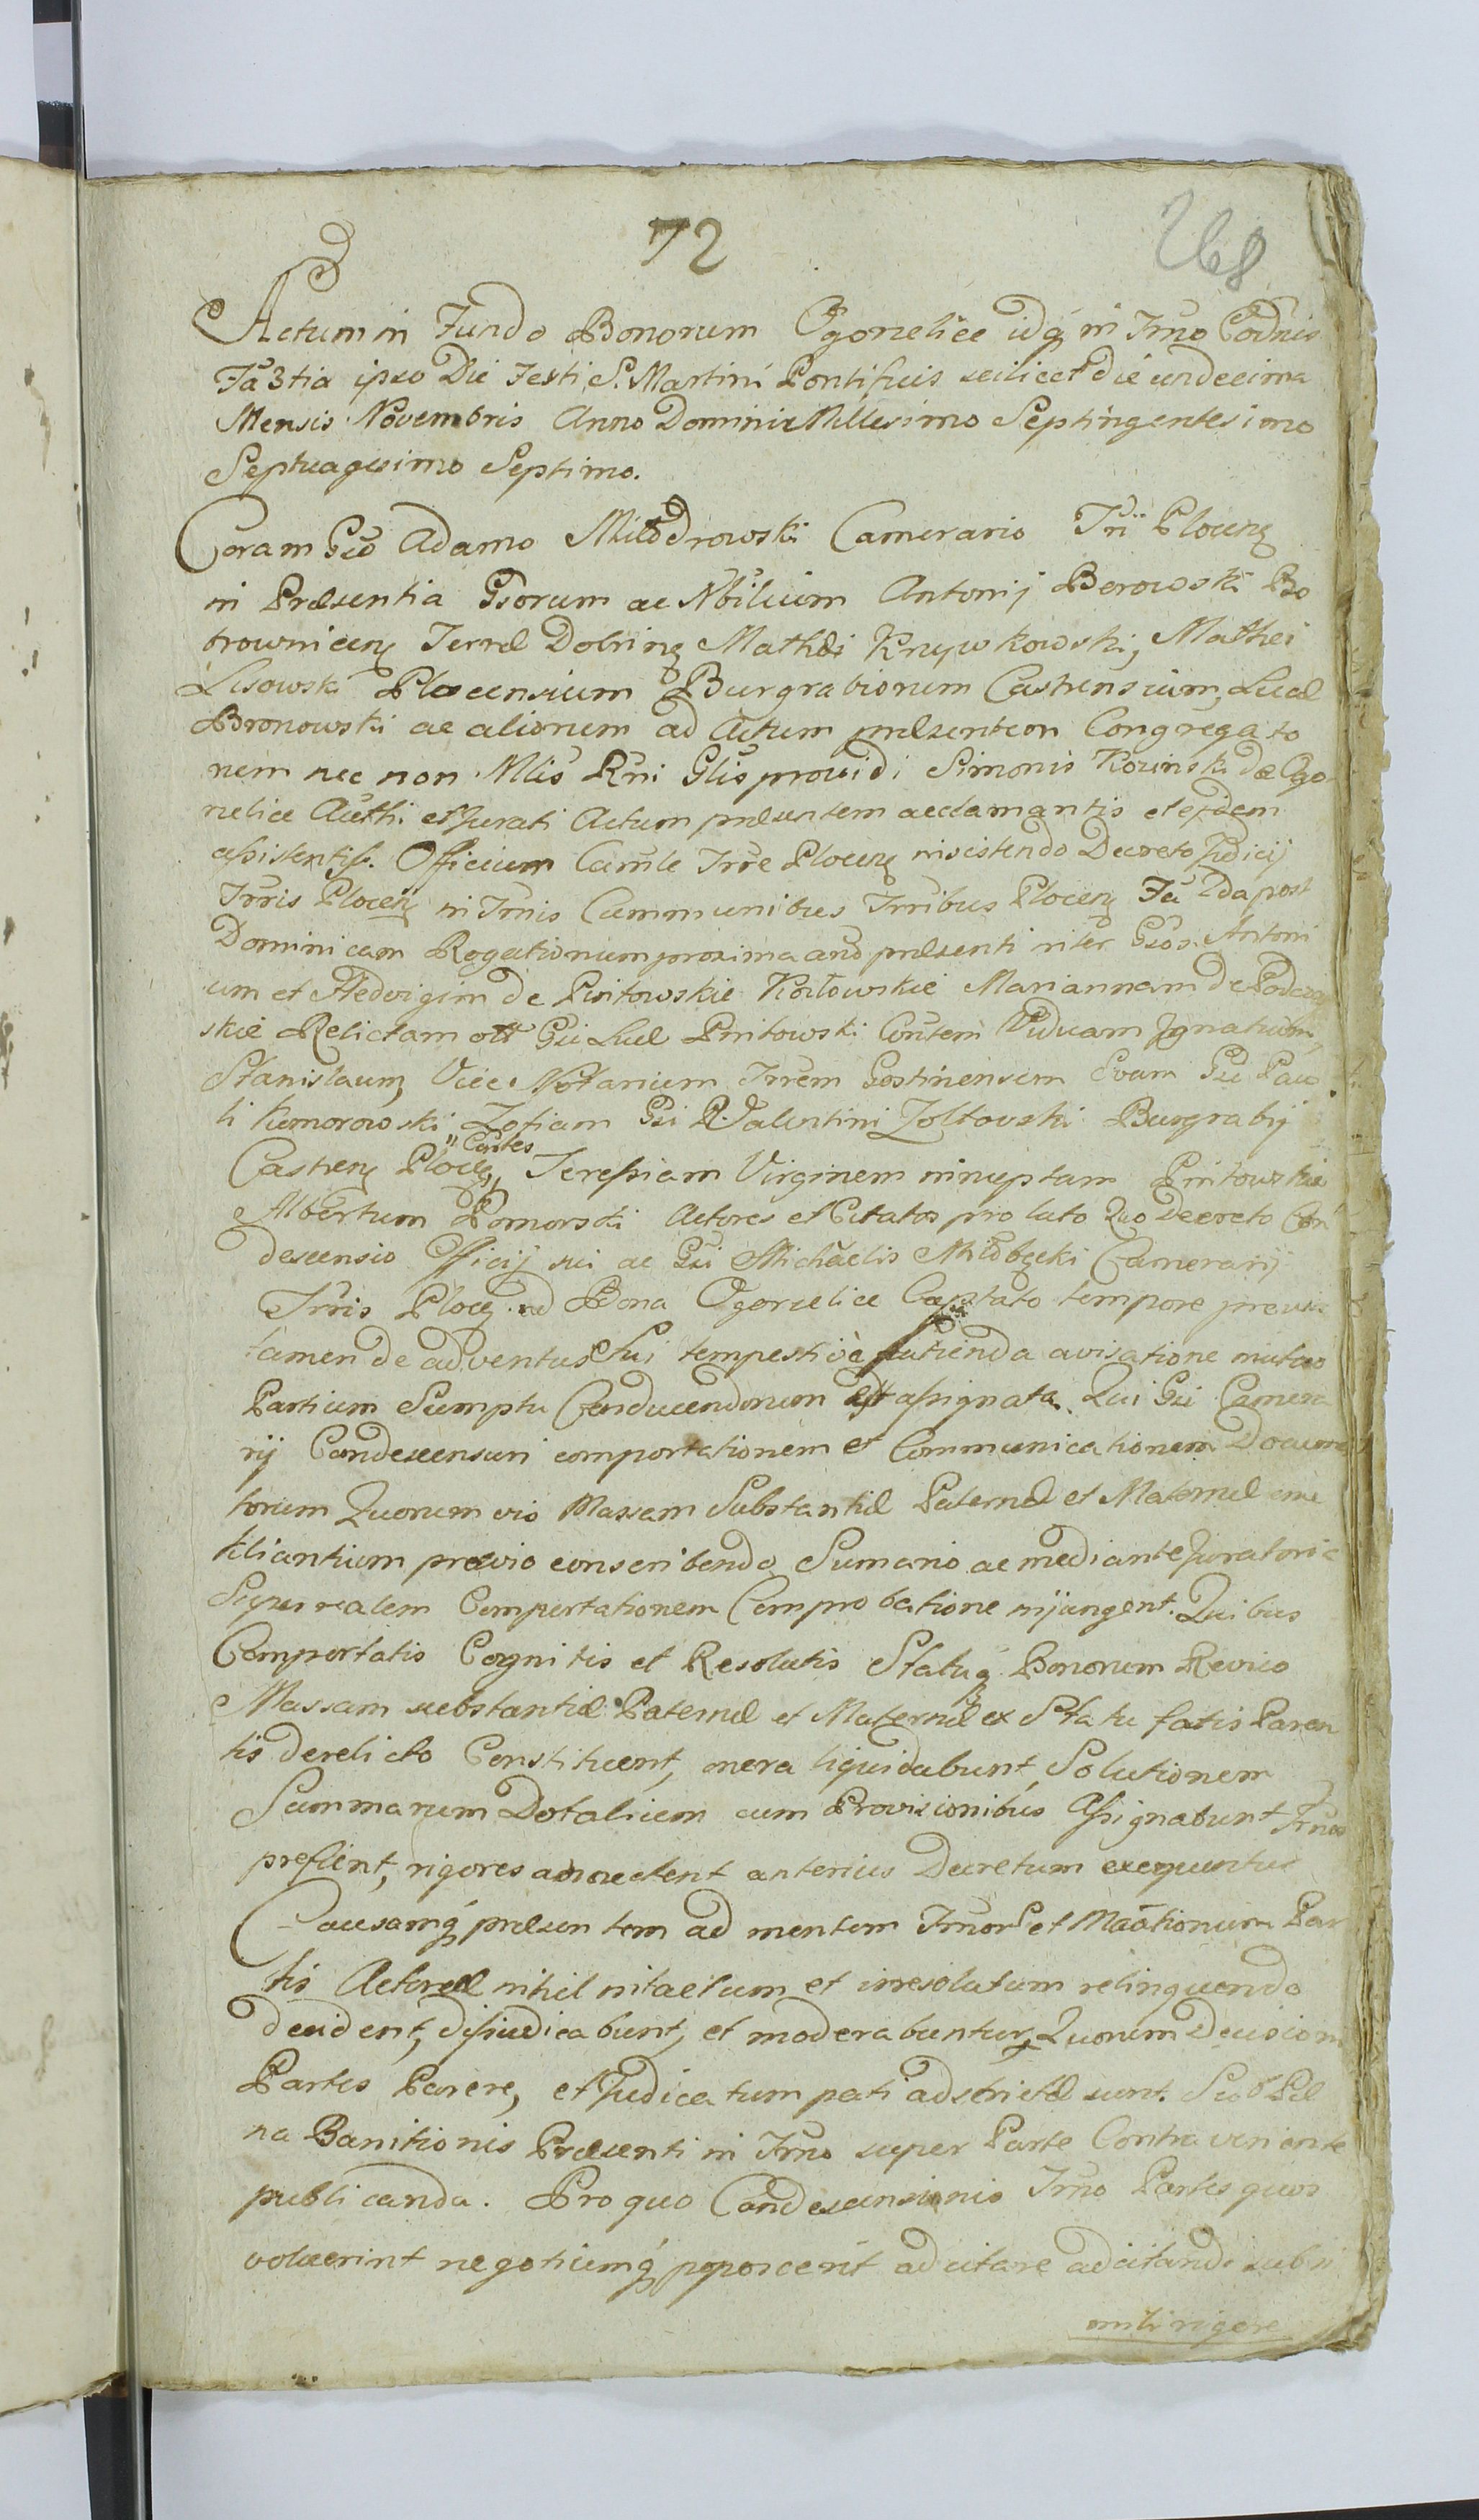 72
268
Actum in Fundo Bonorum Ogonelice idq́ in Trno Codnis
Fa 3tia ipso Die Festi S. Martini Pontificis scilicet die undecima
Mensis Novembris Anno Domini Millesimo Septingentesimo
Septuagesimo Septimo.
Coram Gso Adamo Miłodrowski Camerario Trii Plocen
in Præsentia Gsorum ac Nbilium Antonij Borowski Bo
trownicen Terræ Dobrin Mathæi Krzywkowski, Mathei
Lisowski Plocensium Burgrabiorum Castrensium, Lucæ
Bronowski ac aliorum ad Actum præsentem Congregato
nem nec non Mlis Rni Glis providi Simonis Kozinski de Ogo
nelice Actti. et Jurati Actum præsentem acclamantis et ejdem
assistentis. Officium Camle Trre Plocen insistendo Decreto Judicij
Trris Plocen in Trnis Communibus Trribus Plocen Fa 2da post
Dominicam Rogationum proxima anō præsenti inter Gsos Antoni
um et Hedvigim de Pnitowskie Kozłowskie Mariannam de Podczas
skie Relictam olt Gsi Lucæ Pnitowski Conteni Viduam Ignatium,
Stanislaum, Vice Notarium Trrem Gostinensem Evam Gsi Pau
li Komorowski Zofiam Gsi P. Valentini Zołtowski Burgrabij
Castren Plocen, Teressiam Virginem innuptam Pnitowskie
"Contes
Albertum Pomorski Actores et Citatos pro lato Quo Decreto Con
descensio Officij sui ac Gsi Michaelis Miłobęcki Camerarij
Trris Plocen ad Bona Ogonelice Captato tempore previa
tamen de adventu Sui tempestivè facienda avisatione mutuo
Partium Sumptu Conducendorum est assignata. Qui Gsi Camera
rij Condescensuri comportationem et Communicationem Documen
torum Quorum vis Massam Substantiæ Paternæ et Maternæ
prævio conscribendo Sumario ac mediante Juratoria
Super realem Comportationem Comprobatione injungent. Quibus
Comportatis Cognitis et Resolutis Statuq́ Bonorum Reviso
Massam substantiæ Paternæ et Maternæ ex Statu fatis Paren
tis derelicto Constituent, onera liquidabunt, Solutionem
Summarum Dotalium cum Provisionibus Assignabunt Trnos
prefient, rigores adnectent anterius Decretum exequuntur
Causamq́ præsentem ad mentem Trnor et Maationum Par
tis Actoreæ nihil intactum et irresolutum relinquendo
decident, dijudicabunt, et moderabuntur, Quorum Decisioni
Partes Parere, et Judicatum pati adstrictæ sunt. Sub Pæ
na Banitionis Præsenti in Trno super Parte Contraveniente
publicanda. Pro quo Condescensionis Trno Partes quos
voluerint negotiumq́ poposcerit adcitare adcitandi subsi
mili rigore